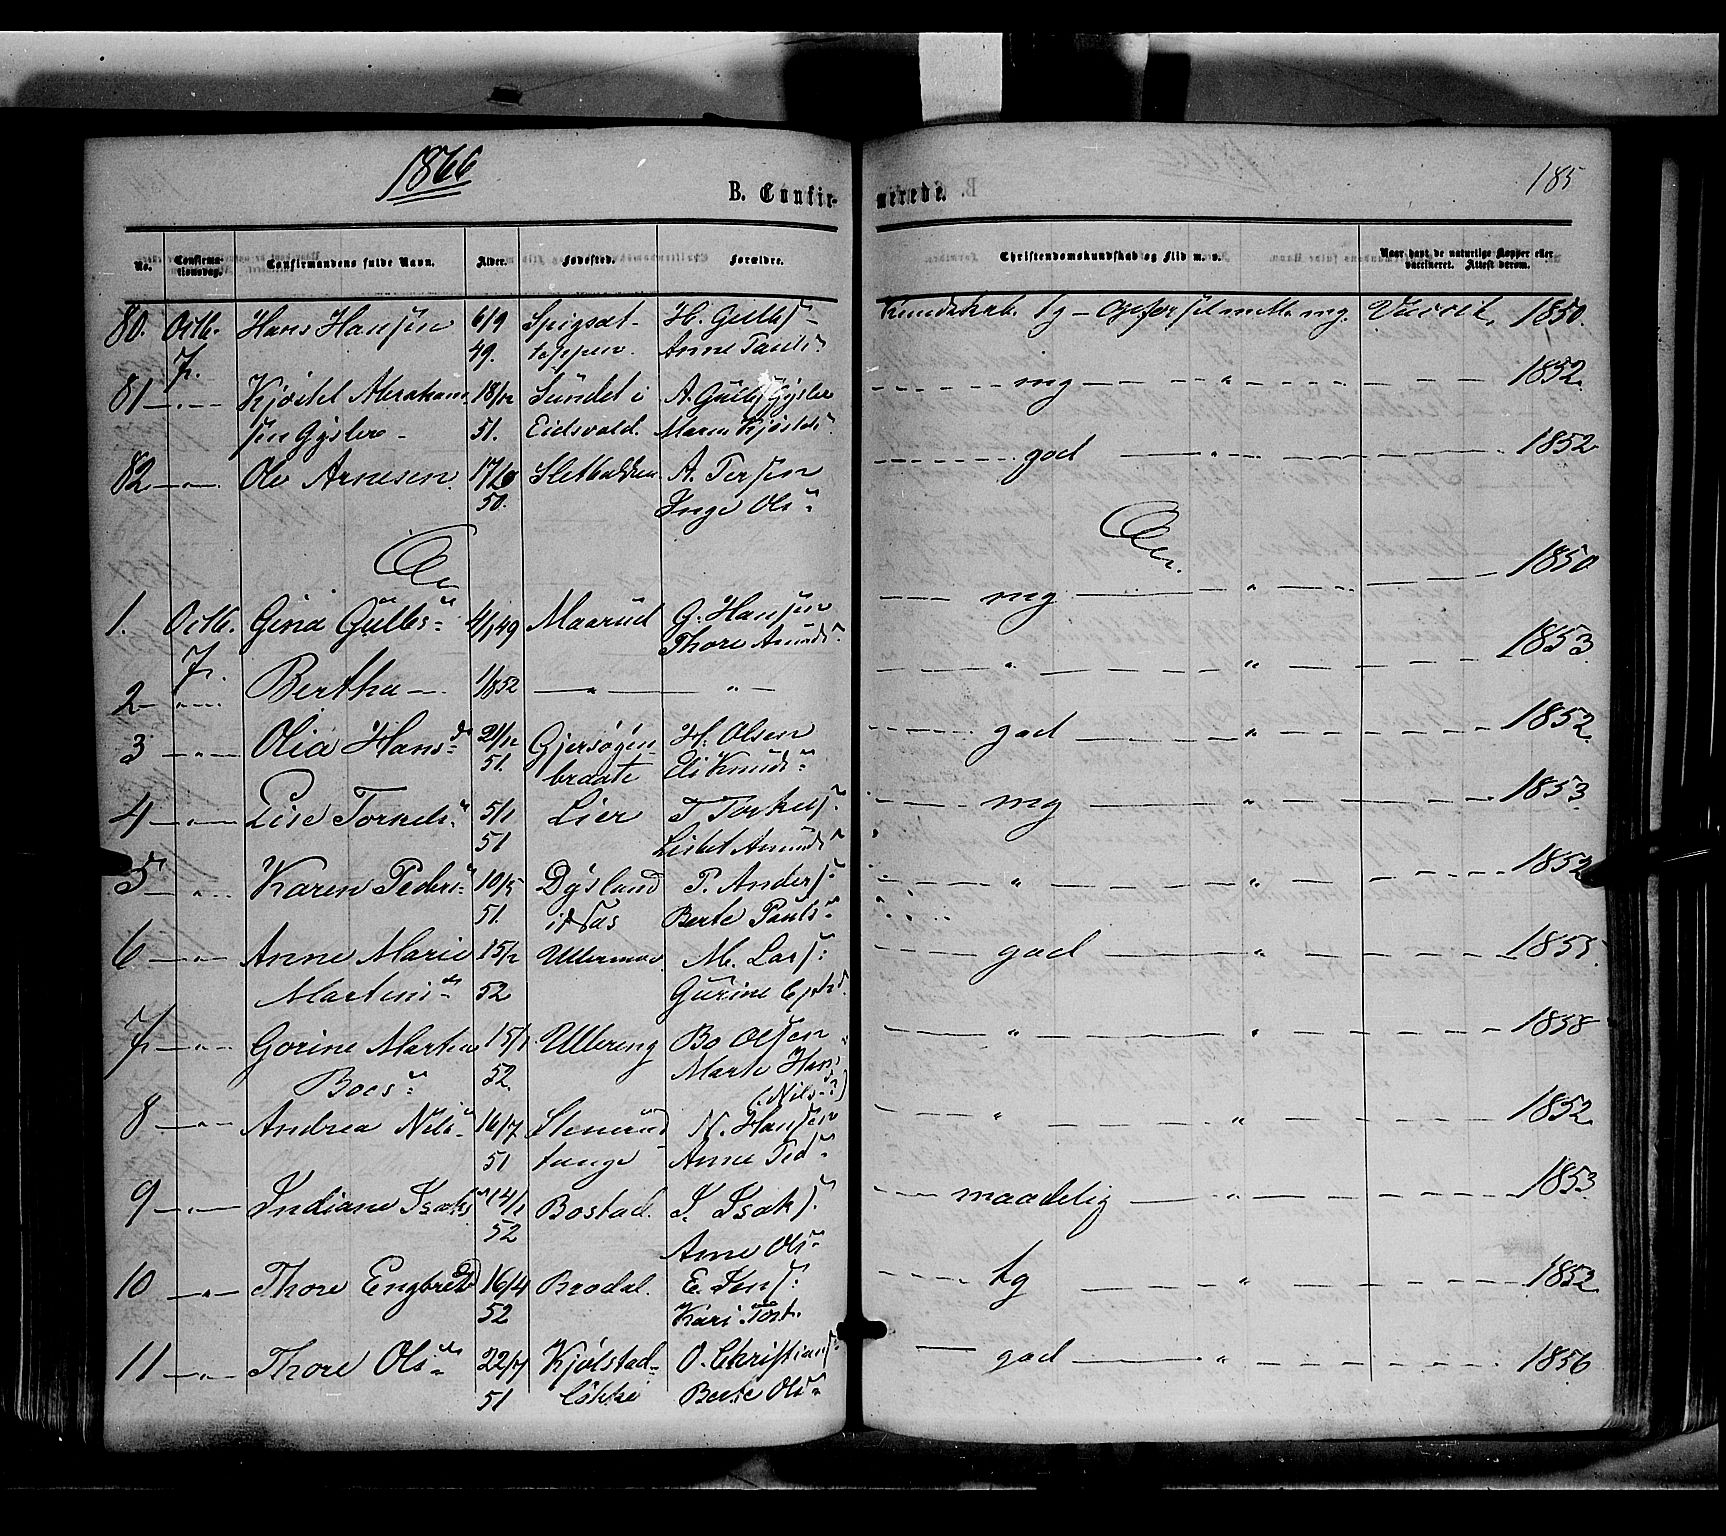 1866
B. Confirmerede.
185
No. Confirmationsdag. Confirmandens fulde Navn. Alder. Fødested. Forældre. Christendomskundskab og Flid m. v. Naar havt de naturlige Kopper eller vaccineret. Attest derom.
80. Octb. Hans Hansen 6/9 Spigsæt- H. Gulbs. Kundskab tg - mg. 1850.
7. 49. toppen. Anne Pauls
81 - " - Kjøstel Abraham 18/12 Sundet i A. Gulbs Gysler - mg - " - 1852.
sen Gysler 51. Eidsvold. Maren Kjøstels
82 - " - Ole Arnesen 17/20 Sletbakken A. Persen - god - " - 1852
50. Inge Ols
1. Octb. Gina Gulbs 4/1 49 Maarud G. Hansen - mg - " - 1850
7. Thore Amunds
2 - " - Bertha - 1/8 52 - " - - " - - " - " - 1853
3 - " - Olia Hans 21/12 Gjersøgen H. Olsen - god - " - 1852.
51. braate Eli Knuds
4 - " - Lise Torkels 5/1 Lier T Torkels. - mg - " - 1853
51 Lisbet Amunds
5 - " - Karen Peders 10/5 Dysland P. Anders. - " - " - 1852
51. Berte Pauls
6 - " - Anne Marie 15/2 Ullermoe M. Lars: - god - " - 1855.
Martinis 52 Gurine
7 - " - Gorine Marten 15/1 Ullereng Bo Olsen - " - " - 1858
Boes 52. Marte Hans
(Nils)
8 - " - Andrea Nils 16/7 Stenerud N. Hansen - " - " - 1852.
51 tange Anne Ped
9 - " - Indiane Isaks 14/1 Bostad. I. Isaks. - maadelig - " - 1853.
52 Anne Ols
10 - " - Thore Engbrets 16/4 Brodal. E. Jens: - tg - " - 1852.
52 Kari Tost.
11 - " - Thore Ols 22/7 Kjølstad- O. Christians: - god - " - 1856
51 løkke Berte Ols